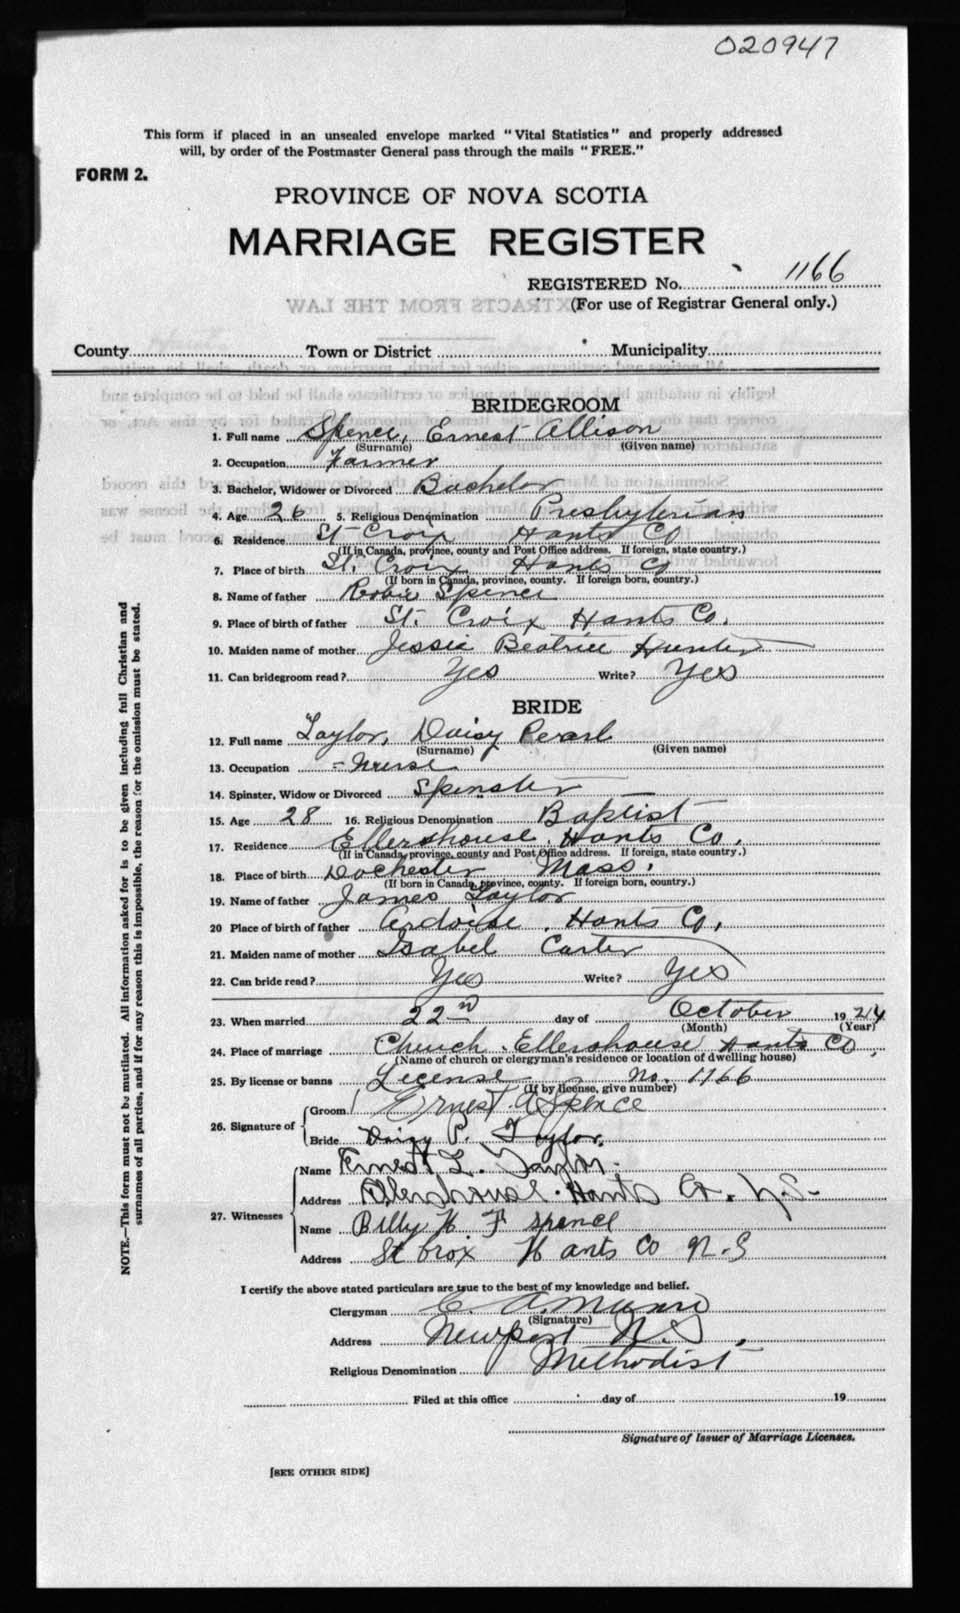 020947
This form if placed in an unsealed envelope marked "Vital Statistics" and properly addressed
will, by order of the Postmaster General pass through the mails "FREE."
FORM 2.
PROVINCE OF NOVA SCOTIA
MARRIAGE REGISTER
REGISTERED No. 1166
(For use of Registrar General only.)
County Town or District Municipality
BRIDEGROOM
1. Full name Spence, Ernest Allison
(Surname) (Given name)
2. Occupation Farmer
3. Bachelor, Widower or Divorced Bachelor
4. Age 26 5. Religious Denomination Presbyterian
6. Residence St Croix Hants Co
(If in Canada, province, county and Post Office address. If foreign, state country.)
7. Place of birth St. Croix Hants Co
(If born in Canada, province, county. If foreign born, country.)
8. Name of father Robie Spence
9. Place of birth of father St. Croix Hants Co.
10. Maiden name of mother Jessie Beatrice Hunter
11. Can bridegroom read? Yes Write? Yes
BRIDE
12. Full name Taylor, Daisy Pearl
(Surname) (Given name)
13. Occupation - Nurse
14. Spinster, Widow or Divorced Spinster
15. Age 28 16. Religious Denomination Baptist
17. Residence Ellershouse, Hants Co.
(If in Canada, province, county and Post Office address. If foreign, state country.)
18. Place of birth Dochester Mass.
(If born in Canada, province, county. If foreign born, country.)
19. Name of father James Taylor
20 Place of birth of father Ardoise, Hants Co.
21. Maiden name of mother Isabel Carter
22. Can bride read? Yes Write? Yes
23. When married 22nd day of October 1924
(Month) (Year)
24. Place of marriage Church, Ellershouse Hants Co,
(Name of church or clergyman's residence or location of dwelling house)
25. By license or banns License No. 1166
(If by license, give number)
26. Signature of Groom Ernest A Spence
Bride Daisy P. Taylor.
27. Witnesses Name Ernest L. Taylor.
Address Ellershouse. Hants Co. N.S.
Name Billy H F Spence
Address St Croix Hants Co N.S
I certify the above stated particulars are true to the best of my knowledge and belief.
Clergyman E. A. Munro
(Signature)
Address Newport N.S,
Religious Denomination Methodist
Filed at this office day of 19
Signature of Issuer of Marriage Licenses.
[SEE OTHER SIDE]
NOTE.—This form must not be mutilated. All information asked for is to be given including full Christian and
surnames of all parties, and if for any reason this is impossible, the reason for the omission must be stated.